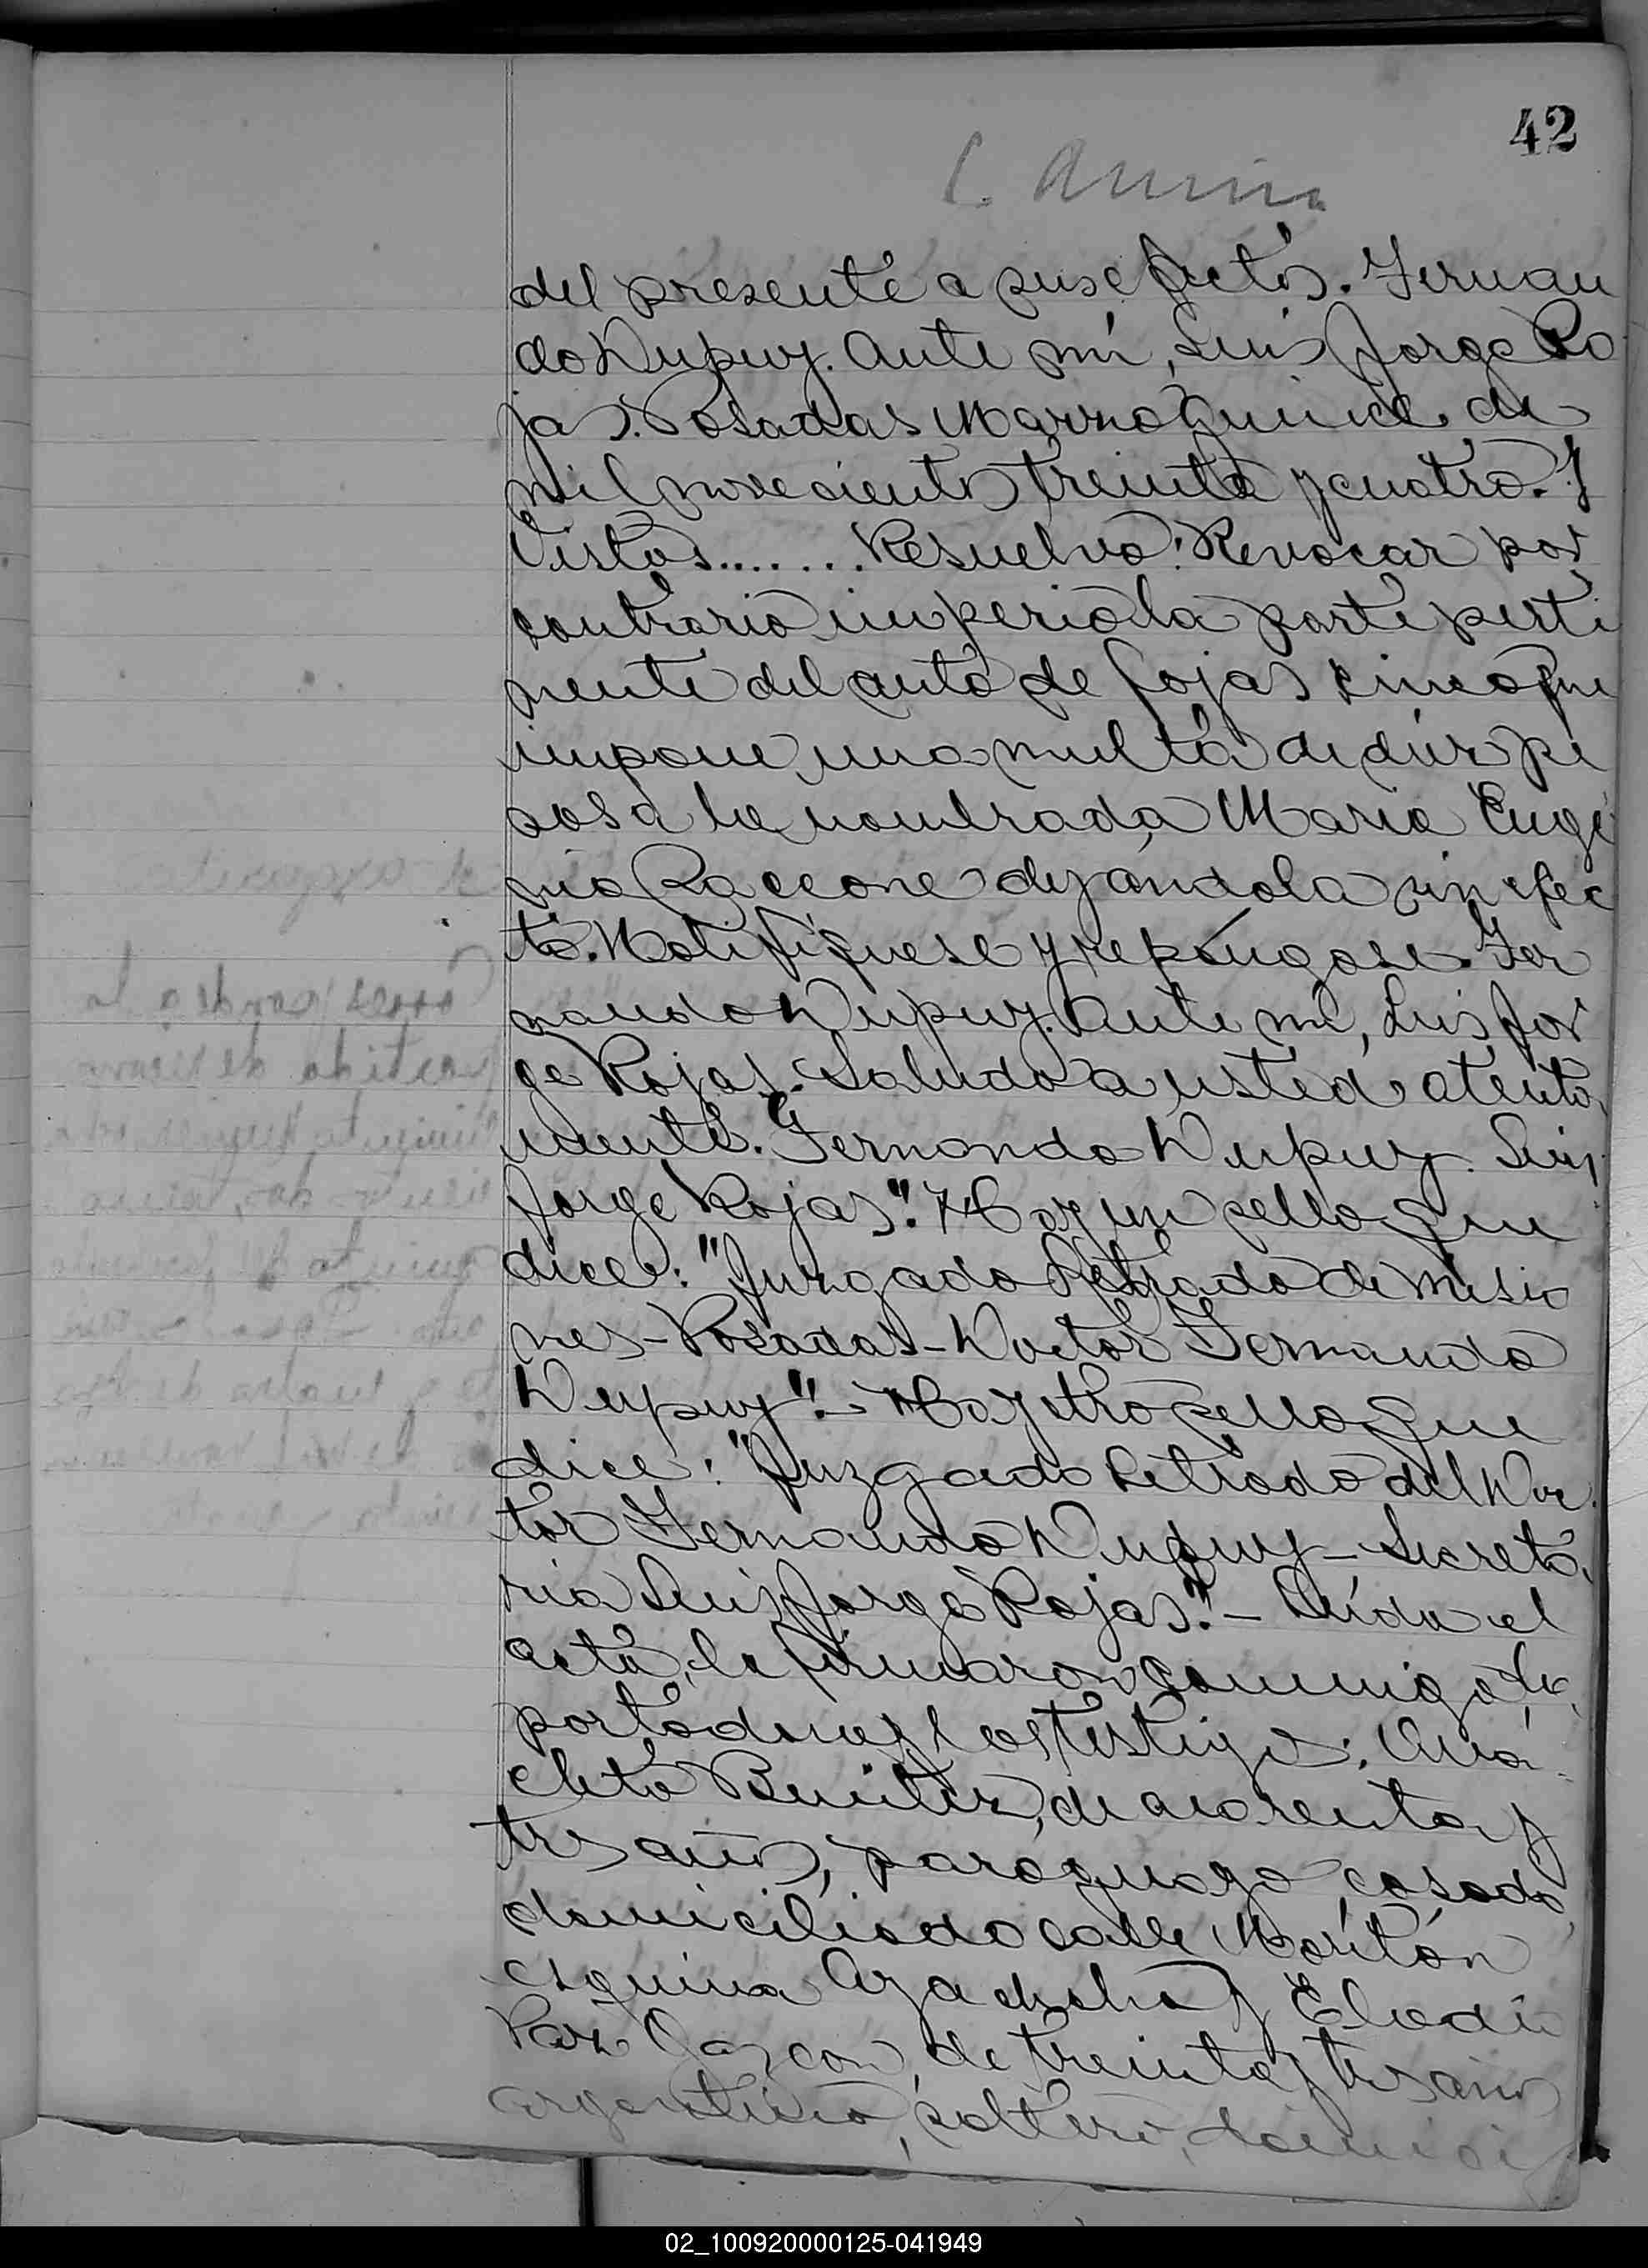 42
del presente a sus efectos. Fernan
do Dupuy. Ante mí, Luis Jorge Ro
jas. Posadas Marzo quince de
mil novecientos treinta y cuatro. Y
Vistos....... Resuelvo: Revocar por
contrario imperio la parte perti
nente del auto de fojas cinco que
impone una multa de diez pe
sos a la nombrada Maria Euge
nia Raccone dejándola sin efec
to. Notifíquese y repóngase. Fer
nando Dupuy. Ante mí, Luis Jor
ge Rojas. Saludo a usted atenta
mente. Fernando Dupuy. Luis
Jorge Rojas". Hay un sello que
dice: "Juzgado Letrado de Misio
nes - Posadas - Doctor Fernando
Dupuy".- Hay otro sello que
dice: "Juzgado Letrado del Doc
tor Fernando Dupuy - Secreta
ria Luis Jorge Rojas".- Leída el
acta, la firmaron conmigo
y los testigos: Aná
cleto Benitez, de cuarenta y
tres años, paraguayo, casado,
domiciliado calle
esquina Ayacucho y Eladio
Paz Gascon, de treinta y tres años
argentino, soltero, domici
02_100920000125-041949